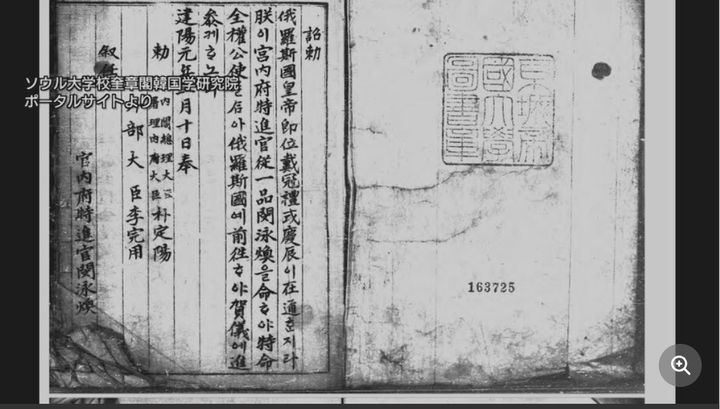 京城帝
國大學
圖書章
163725
詔勅
俄羅斯國皇帝即位戴冠禮式慶辰이在邇ᄒᆞᆫ지라
朕이宮内府特進官從一品閔泳煥을命ᄒᆞ야特命
全權公使를 아俄羅斯國에前徃ᄒᆞ야賀儀에進
叅케ᄒᆞ노
建陽元年 月十日奉
勅
内閣總理大臣
署理内部大臣朴定陽
部大臣李完用
叙任
宮内府特進官閔泳煥
ソウル大学校奎章閣韓国学研究院
ポータルサイトより